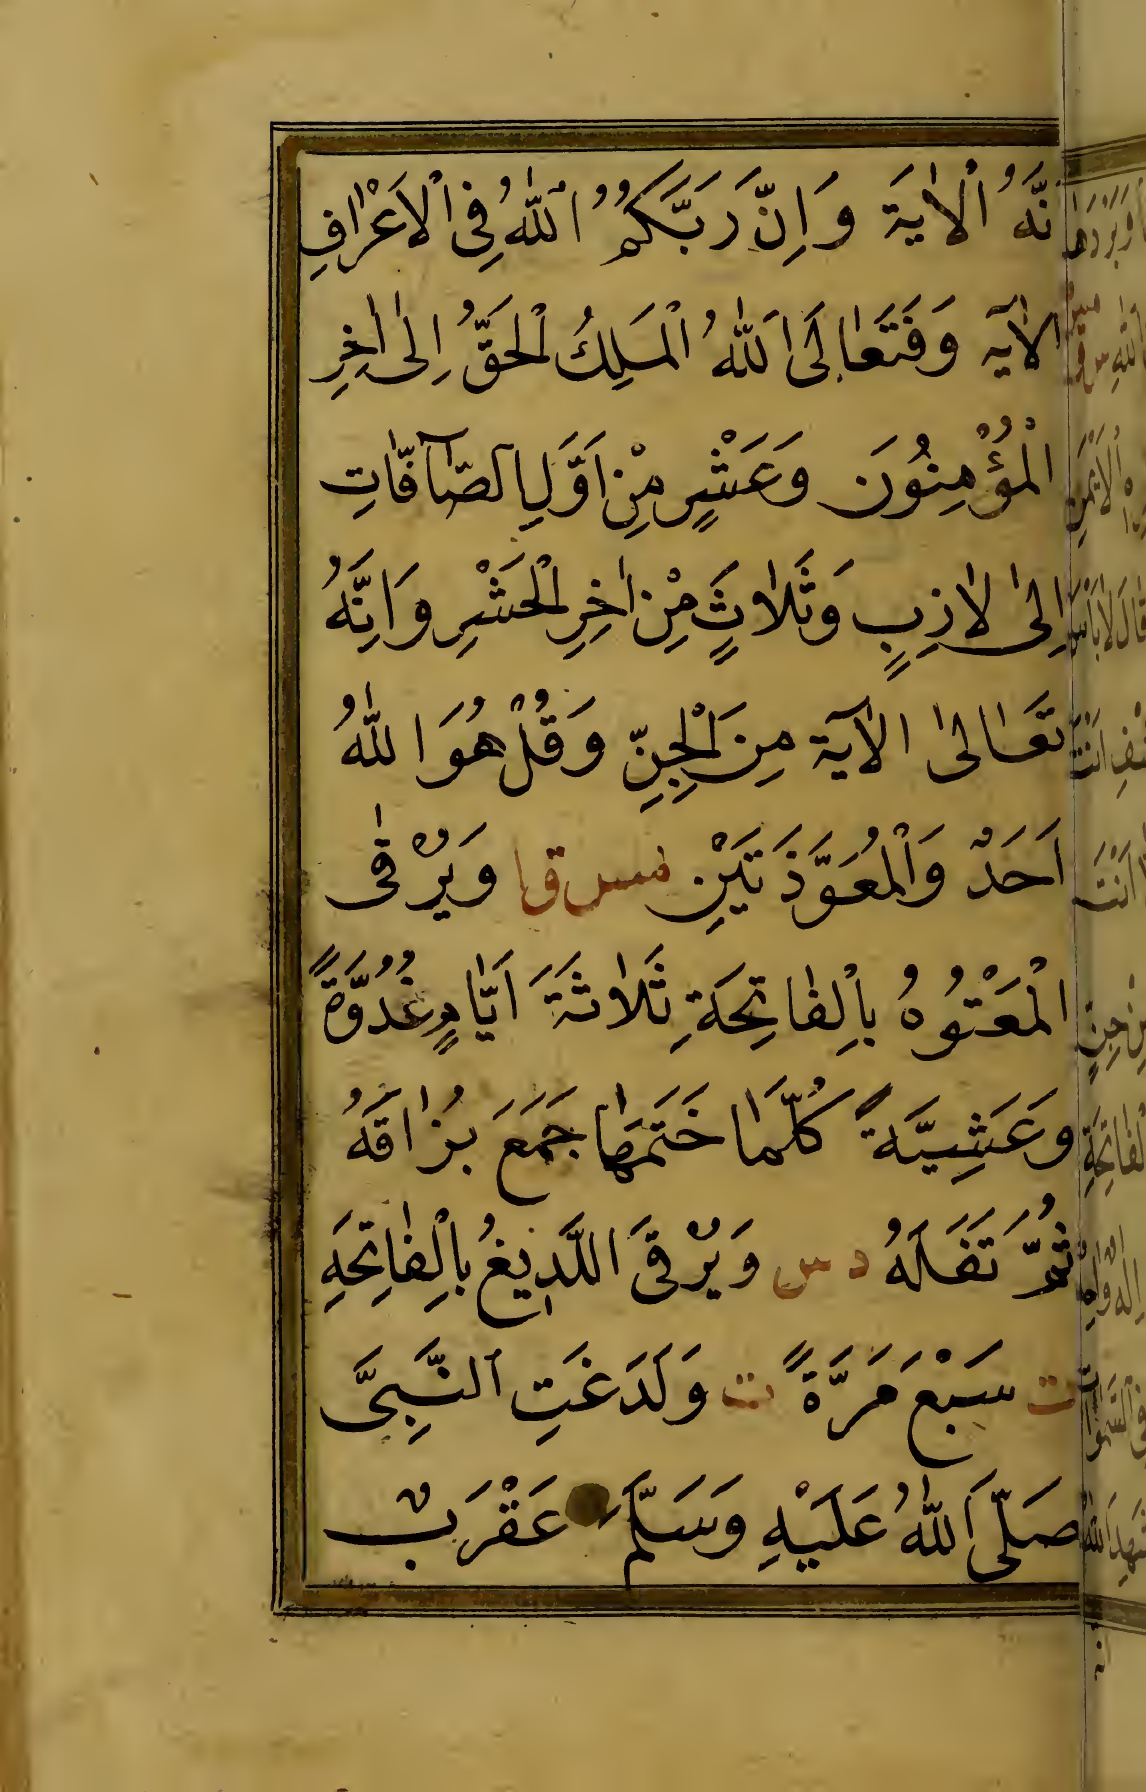 نَّهُ الْاٰيَةَ وَاِنَّ رَبَّكُمُ اللّٰهُ فِي الْاَعْرَافِ
الاٰيه وَفَتَعَالَى اللّٰهُ الْمَلِكُ الْحَقُّ اِلٰى اٰخِرِ
الْمُؤْمِنُونَ وَعَشْرٍ مِنْ اَوَّلِ الصَّآفَّاتِ
اِلىٰ لَازِبٍ وَثَلَاثٍ مِنْ اٰخِرِ الْحَشْرِ وَاَنَّهُ
تَعَالىٰ الاٰيَة مِنَ الْجِنِّ وَقُلْ هُوَ اللّٰهُ
اَحَدٌ وَالْمُعَوَّذَتَيْنِ مس ق ا وَيُرْقٰى
الْمَعْتُوهُ بِالْفَاتِحَةِ ثَلَاثَةَ اَيَّامٍ غُدُوَّةً
وَعَشِيَّةً كُلَّمَا خَتَمَهَا جَمَعَ بُزَاقَهُ
ثُمَّ تَفَلَهُ د س وَيُرْقَى اللَّدِيغُ بِالْفَاتِحَةِ
ت سَبْعَ مَرَّةً ت وَلَدَغَتِ النَّبِيَّ
صَلَّى اللّٰهُ عَلَيْهِ وَسَلَّمَ عَقْرَبٌ